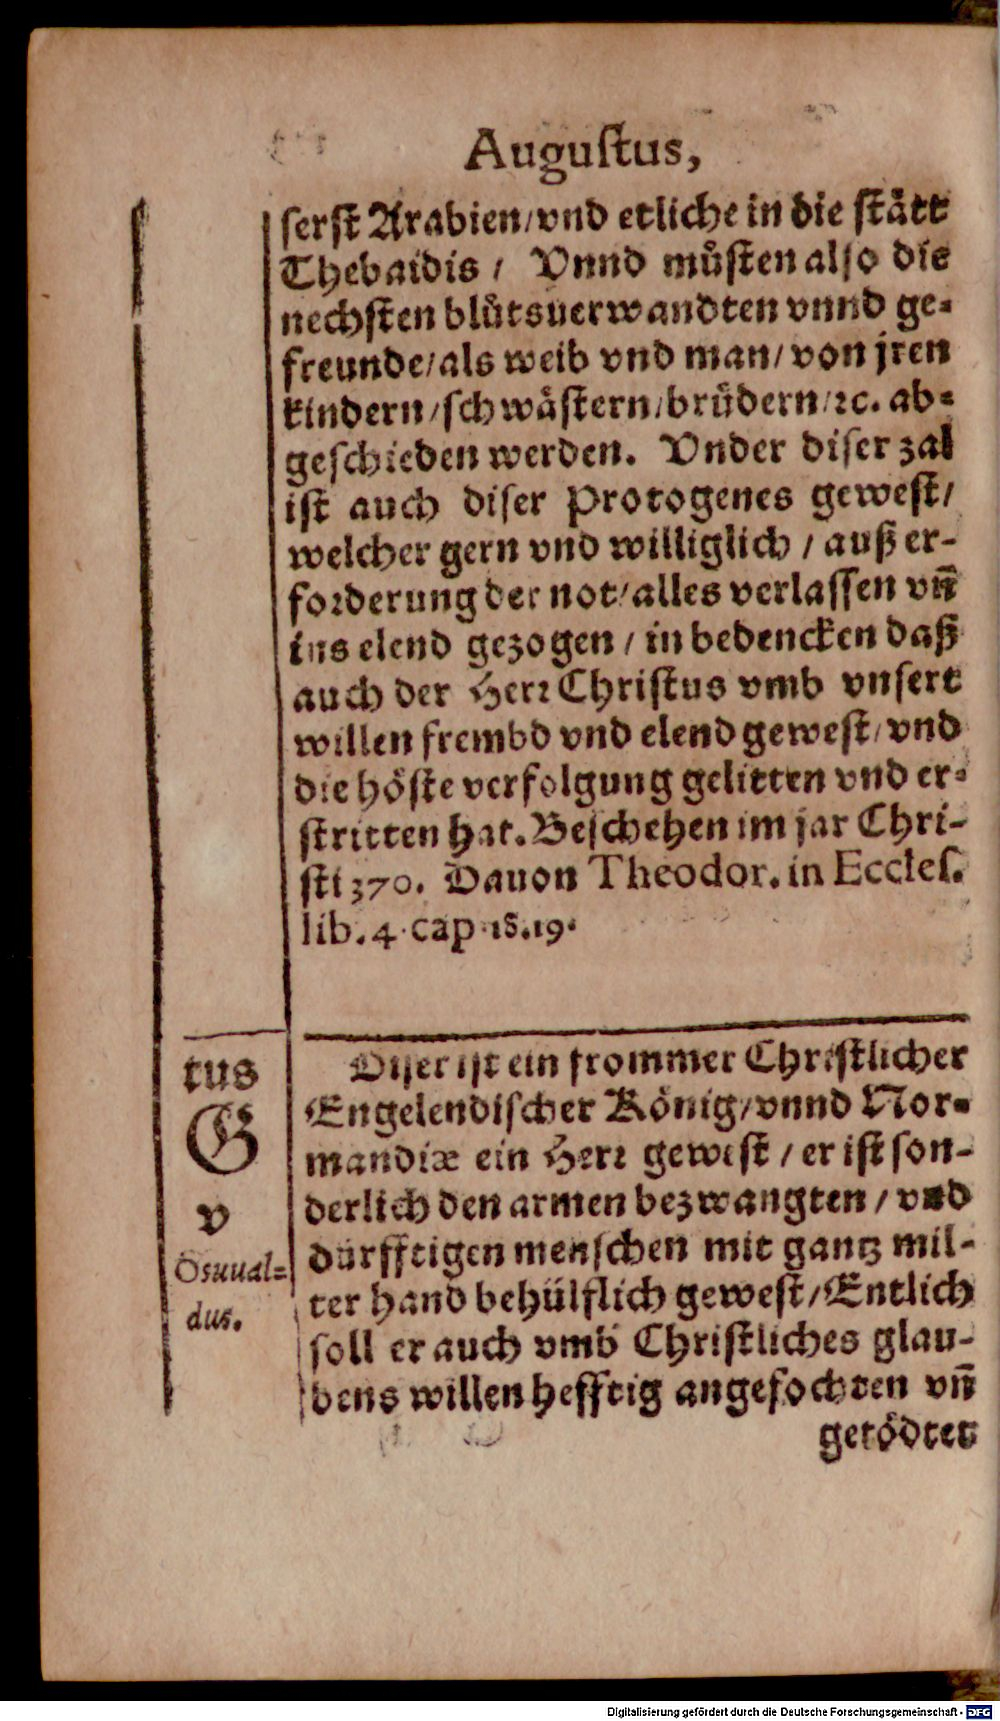 Augustus,
serst Arabien/vnd etliche in die stått
Thebaidis / Vnnd můsten also die
nechsten blůtsuerwandten vnnd ge-
freunde/als weib vnd man/von jren
kindern/schwåstern/brůdern/ꝛc. ab-
geschieden werden. Vnder diser zal
ist auch diser Protogenes gewest/
welcher gern vnd williglich / auß er-
forderung der not/alles verlassen vñ
ins elend gezogen / in bedencken daß
auch der Herr Christus vmb vnsert
willen frembd vnd elend gewest/vnd
die höste verfolgung gelitten vnd er-
stritten hat. Beschehen im jar Chri-
sti 370. Dauon Theodor. in Eccles.
lib. 4. cap. 18. 19.
tus
G
v
Osuual-
dus.
Diser ist ein frommer Christlicher
Engelendischer König/vnnd Nor-
mandiæ ein Herr gewest / er ist son-
derlich den armen bezwangten / vnd
dürfftigen menschen mit gantz mil-
ter hand behülflich gewest/Entlich
soll er auch vmb Christliches glau-
bens willen hefftig angefochten vñ
getödtet
Digitalisierung gefördert durch die Deutsche Forschungsgemeinschaft - DFG